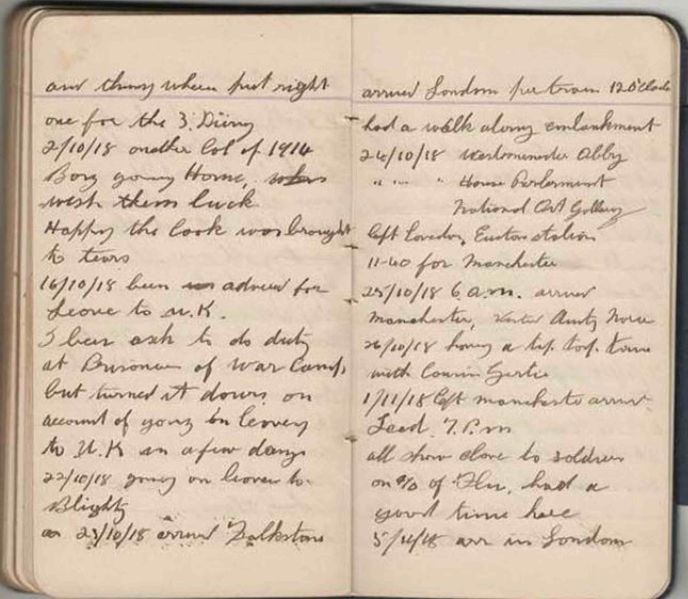 and things where put right
one for the 3. Diing
2/10/18 another lot of 1914
Boys going Home,
wish them luck
Happy the cook was brought
to tears
16/10/18 been advised for
Leave to U.K.
I been ask to do duty
at Prisoner of War Camp,
but turned it down on
account of going on leave
to U.K in a few days
22/10/18 going on leave to
Blighty
23/10/18 arrived Folkstone
arrived London per train 12 O'Clock
had a walk along embankment
24/10/18 Westminster Abby
" " " House Parlerment
National Art Gallery
left London, Euston station
11-40 for Manchester
25/10/18 6 a.m. arrived
Manchester, Aunty
26/10/18 having a tip. top. time
with Cousin Gertie
1/11/18 left Manchester
Leed. 7. P.m
all show close to soldiers
on a/c of Flu, had a
good time here
5/11/18 arr in London